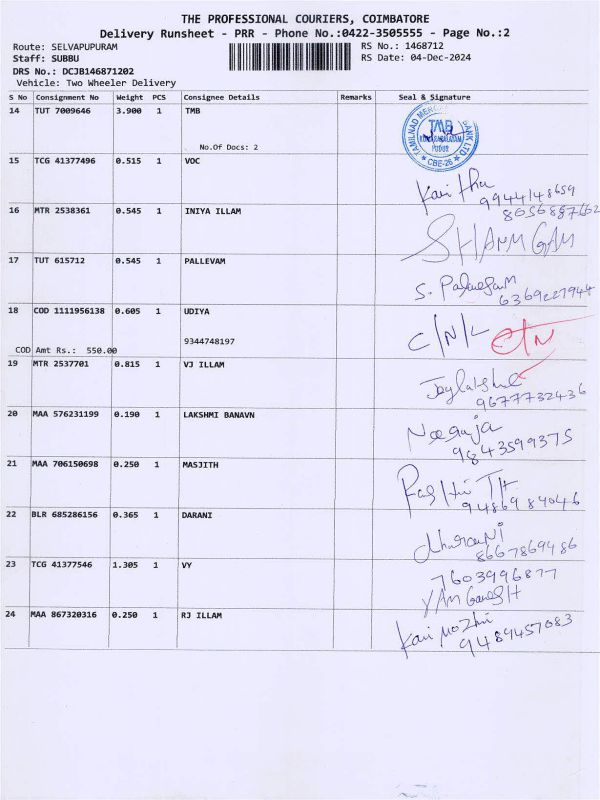 THE PROFESSIONAL COURIERS, COIMBATORE
Delivery Runsheet - PRR - Phone No.:0422-3505555 - Page No.:2
Route: SELVAPUPURAM RS No.: 1468712
Staff: SUBBU RS Date: 04-Dec-2024
DRS No.: DCJB146871202
Vehicle: Two Wheeler Delivery
S No Consignment No Weight PCS Consignee Details Remarks Seal & Signature
14 TUT 7009646 3.900 1 TMB
No.Of Docs: 2
TAMILNAD BANK LTD
TMB
CBE-26
15 TCG 41377496 0.515 1 VOC
9944148659
16 MTR 2538361 0.545 1 INIYA ILLAM
SHANMGAM
17 TUT 615712 0.545 1 PALLEVAM
6369227944
18 COD 1111956138 0.605 1 UDIYA
9344748197
C/N/L
COD Amt Rs.: 550.00
19 MTR 2537701 0.815 1 VJ ILLAM
9677732436
20 MAA 576231199 0.190 1 LAKSHMI BANAVN
Neeraja
9843599375
21 MAA 706150698 0.250 1 MASJITH
9486984046
22 BLR 685286156 0.365 1 DARANI
dharani
8667869486
23 TCG 41377546 1.305 1 VY
7603996877
24 MAA 867320316 0.250 1 RJ ILLAM
9489457083